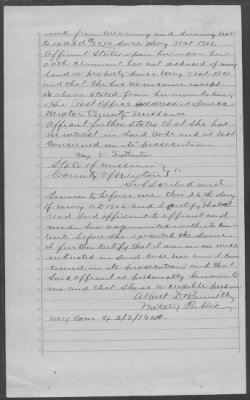 work from
since May 31st 1901.
Affiant States upon her
oath claimant has not disposed of any
land or property since May 31st 1901
and that she has no income except
as above stated from her own labor,
Her Post Office address is Seneca
Newton County Missouri
Affiant further states that she has
no interest in said case and is not
concerned in its prosecution.
May
State of Missouri
County of Newton
Subscribed and
Sworn to before me this 26 day
of May A.D. 1902 and I certify that I
read said affidavit to affiant and
made her acquainted with its con
tents before she executed the same
I further certify that I am in no wise
interested in said case nor am I con
cerned in its prosecution; and that
said affiant is personally known to
me and that she is a credible person
Albert D.
Notary Public
My Com Ex 2/7/